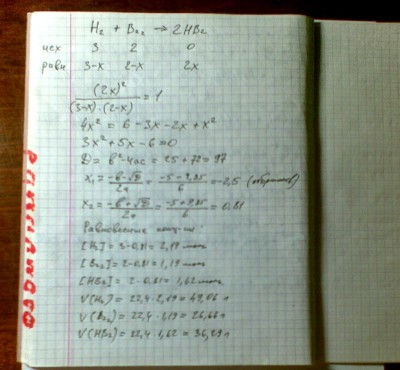 H₂ + Br₂ → 2HBr
исх 3 2 0
равн 3-x 2-x 2x
(2x)² / (3-x)·(2-x) = 1
4x² = 6 - 3x - 2x + x²
3x² + 5x - 6 = 0
D = b² - 4ac = 25 + 72 = 97
x₁ = -b-√D / 2a = -5-9,85 / 6 = -2,5
x₂ = -b+√D / 2a = -5+9,85 / 6 = 0,81
Равновесные
[H₂] = 3-0,81 = 2,19 моль
[Br₂] = 2-0,81 = 1,19 моль
[HBr] = 2·0,81 = 1,62 моль
V(H₂) = 22,4·2,19 = 49,06 л
V(Br₂) = 22,4·1,19 = 26,66 л
V(HBr) = 22,4·1,62 = 36,29 л